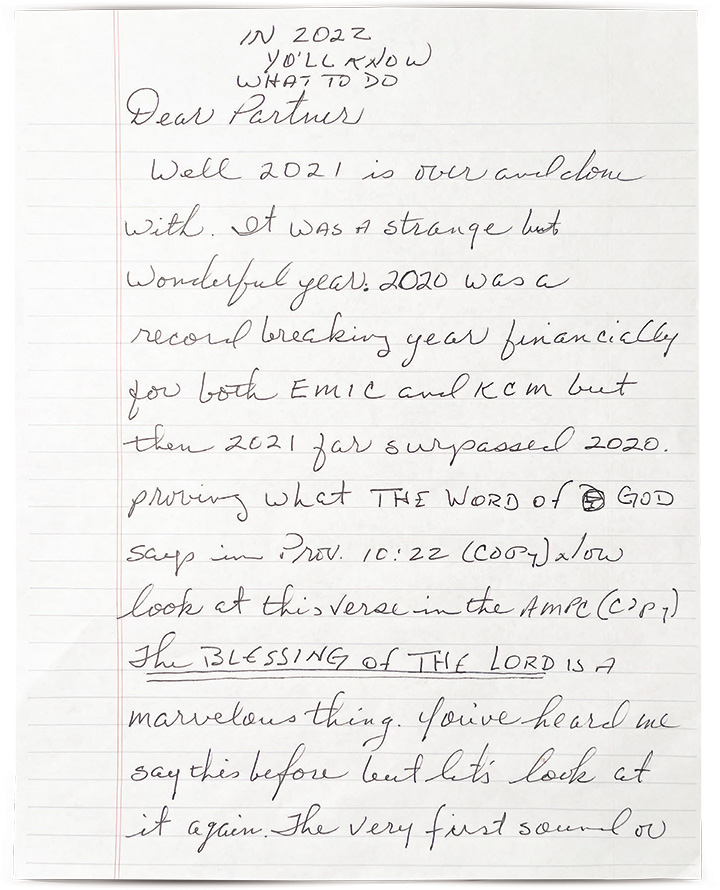 IN 2022
YO'LL KNOW
WHAT TO DO
Dear Partner
Well 2021 is over and done
with. It WAS A strange but
wonderful year. 2020 was a
record breaking year financially
for both EMIC and KCM but
then 2021 far surpassed 2020.
proving what THE WORD of GOD
says in Prov. 10:22 (COPY) Now
look at this verse in the AMPC (COPY)
The BLESSING of THE LORD IS A
marvelous thing. You've heard me
say this before but let's look at
it again. The very first sound or